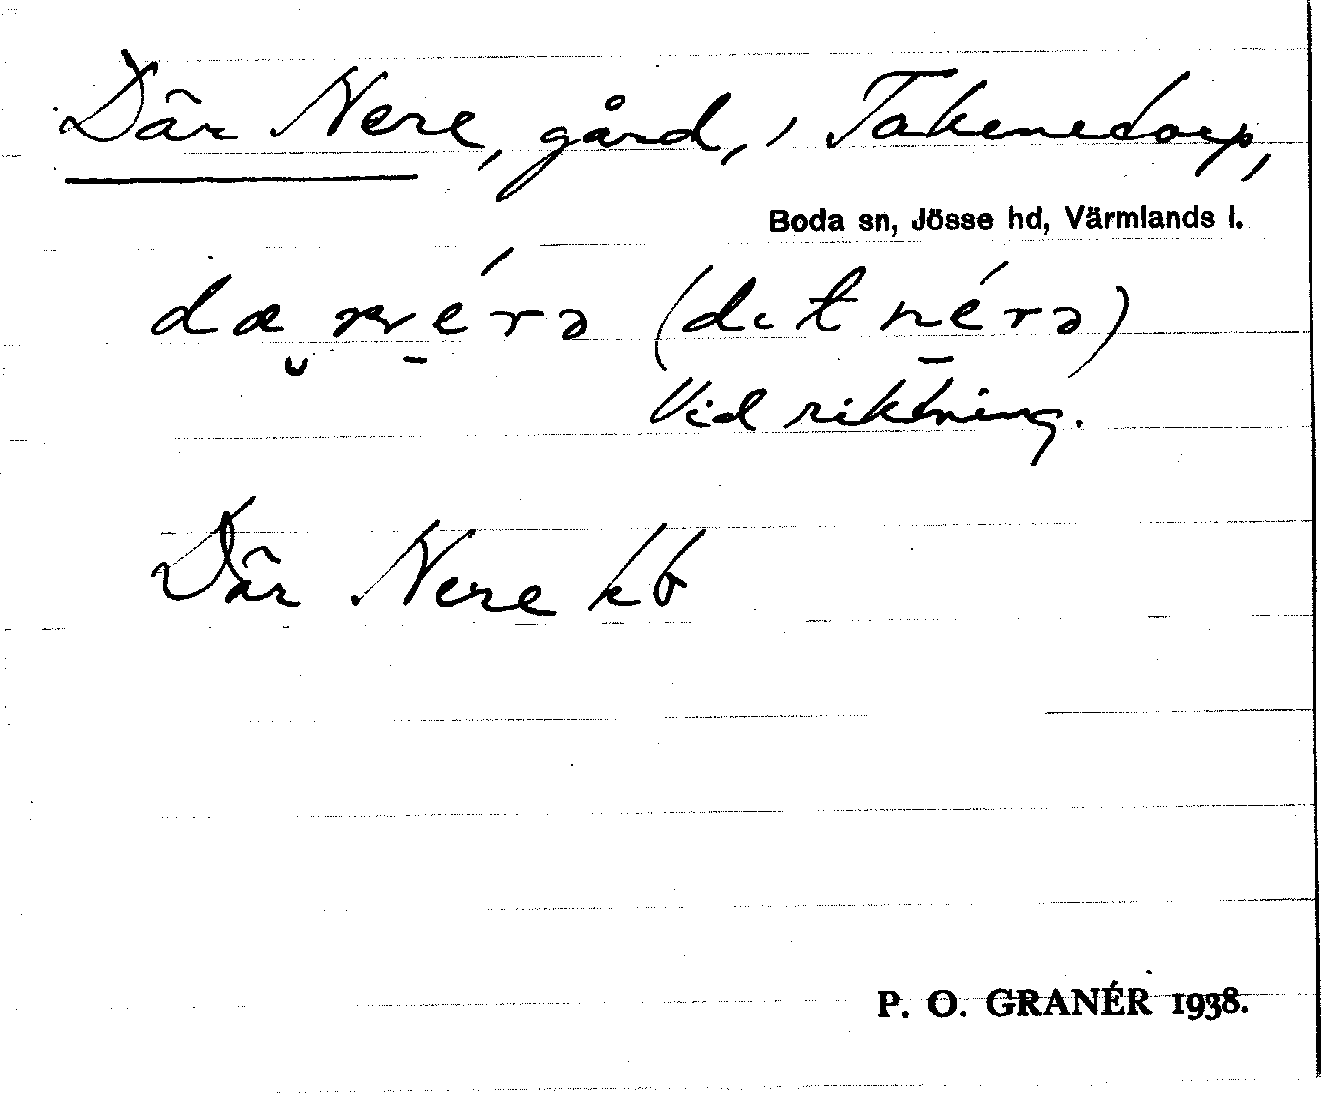 Där Nere, gård, i Takenedorp,
Boda sn, Jösse hd, Värmlands l.
dæ nérə (dit nérə)
Vid riktning.
Där Nere kb
P. O. GRANÉR 1938.